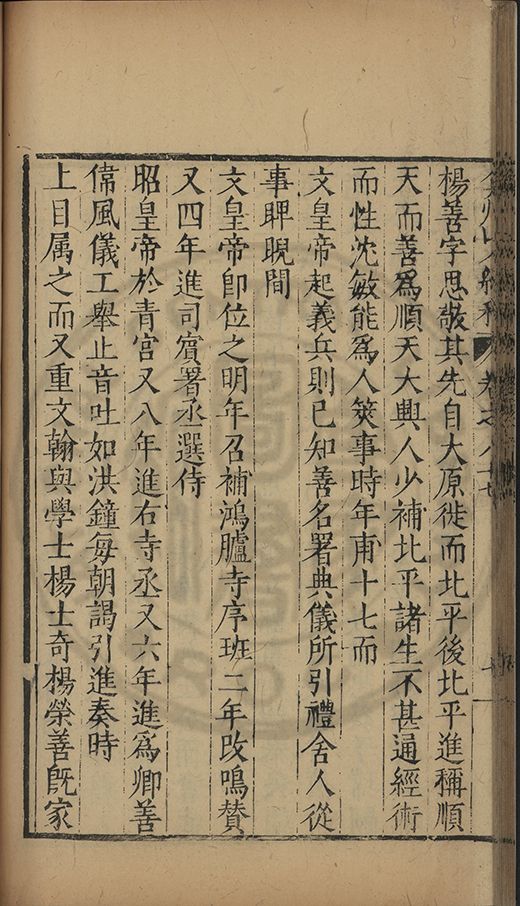 卷之八十七
楊善字思敬其先自大原徙而北平後北平進稱順
天而善爲順天大興人少補北平諸生不甚通經術
而性沈敏能爲人筴事時年甫十七而
文皇帝起義兵則已知善名署典儀所引禮舍人從
事睥睨間
文皇帝卽位之明年召補鴻臚寺序班二年改鳴贊
又四年進司賓署丞選侍
昭皇帝於青宮又八年進右寺丞又六年進爲卿善
偉風儀工舉止音吐如洪鐘每朝謁引進奏時
上目属之而又重文翰與學士楊士奇楊榮善旣家